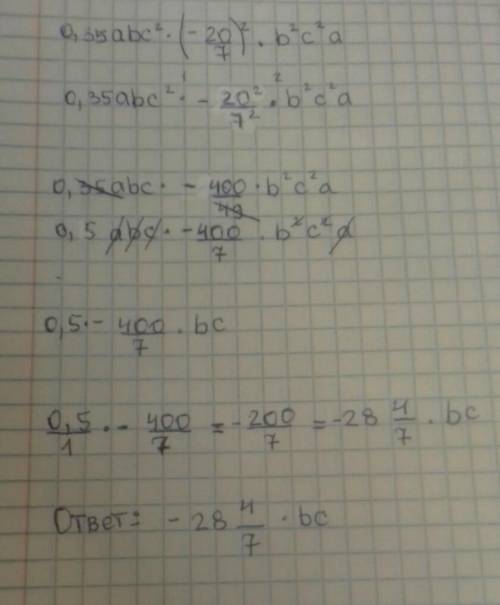 0,35abc² · (-20/7)² · b²c²a
0,35abc² · - 20²/7² · b²c²a
0,35abc · - 400/49 · b²c²a
0,5 abc · - 400/7 · b²c²a
0,5 · - 400/7 · bc
0,5/1 · - 400/7 = - 200/7 = -28 4/7 · bc
Ответ: - 28 4/7 · bc